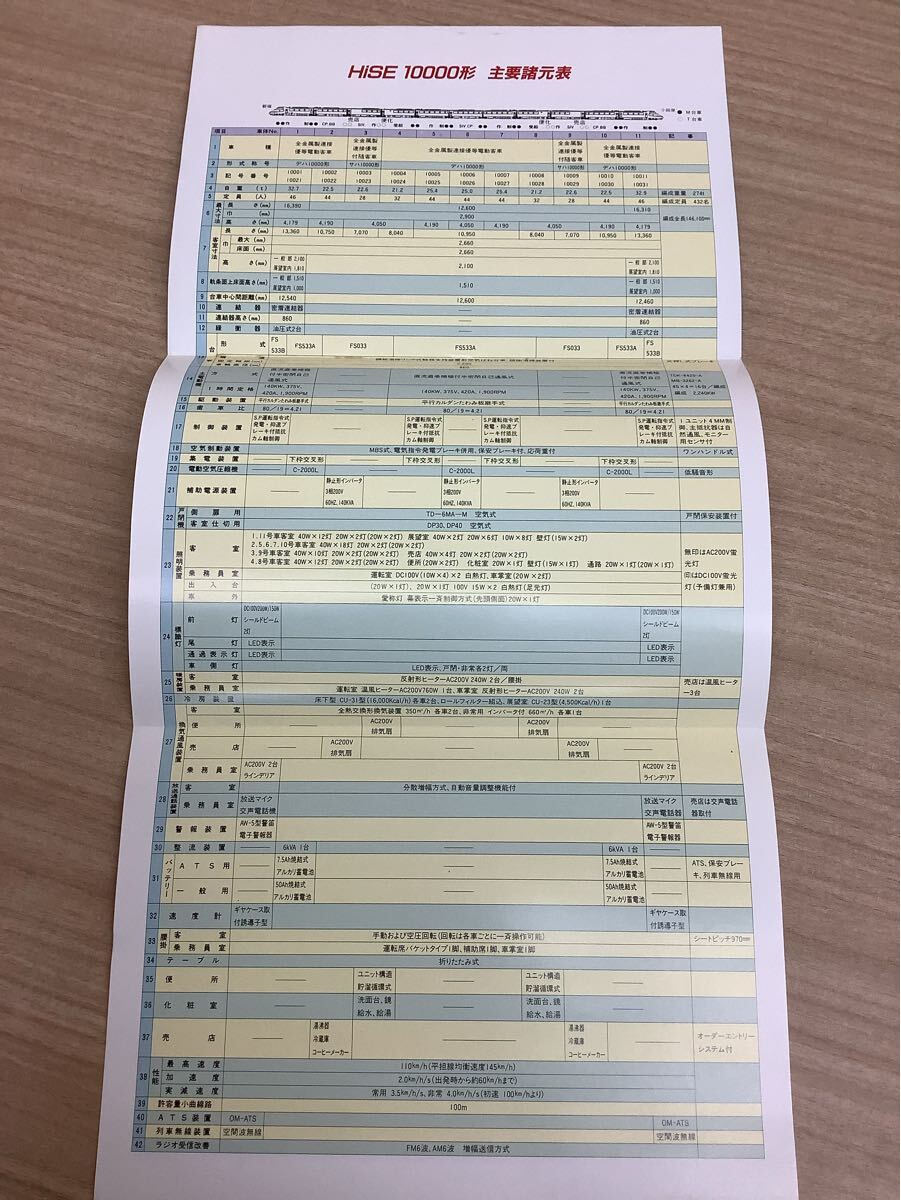 HiSE 10000形 主要諸元表
新宿 小田原 ●M台車 ○T台車
売店 便化 便化 売店
項目 車体No. 1 2 3 4 5 6 7 8 9 10 11 記事
1 車種 全金属製連接優等電動客車 全金属製連接優等付随客車 全金属製連接優等電動客車 全金属製連接優等付随客車 全金属製連接優等電動客車
2 形式称号 デハ10000形 サハ10000形 デハ10000形 サハ10000形 デハ10000形
3 記号番号 10001 10002 10003 10004 10005 10006 10007 10008 10009 10010 10011
10021 10022 10023 10024 10025 10026 10027 10028 10029 10030 10031
4 自重(t) 32.7 22.5 22.6 21.2 25.4 25.0 25.4 21.2 22.6 22.5 32.9 編成重量 274t
5 定員(人) 46 44 28 32 48 48 48 32 28 44 46 編成定員 432名
6 最大寸法 長さ(mm) 16,390 12,600 16,310 編成全長146,100mm
巾(mm) 2,900
高さ(mm) 4,179 4,190 4,050 4,190 4,050 4,190 4,050 4,190 4,179
7 客室寸法 長さ(mm) 13,360 10,750 7,070 8,040 10,950 8,040 7,070 10,950 13,360
巾 最大(mm) 2,660
床面(mm) 2,660
高さ(mm) 一般部 2,100 展望室内 1,810 2,100 一般部 2,100 展望室内 1,810
8 軌条面上床面高さ(mm) 一般部 1,510 展望室内 1,000 1,510 一般部 1,510 展望室内 1,000
9 台車中心間距離(mm) 12,540 12,600 12,460
10 連結器 密着連結器 ── 密着連結器
11 連結器高さ(mm) 860 ── 860
12 緩衝器 油圧式2台 ── 油圧式2台
台 形式 FS533B FS533A FS033 FS533A FS033 FS533A FS533B
14 主電動機 方式
1時間定格 140KW, 375V, 420A, 1,900RPM ── 140KW, 375V, 420A, 1,900RPM ── 140KW, 375V, 420A, 1,900RPM
15 駆動装置 平行カルダンたわみ板継手式 ── 平行カルダンたわみ板継手式 ── 平行カルダンたわみ板継手式
16 歯車比 80/19=4.21 ── 80/19=4.21 ── 80/19=4.21
17 制御装置 S.P運転指令式発電・抑速ブレーキ付抵抗カム軸制御 1ユニット4MM制御、主抵抗器は自然通風、モニター用センサ付
18 空気制動装置 MBS式、電気指令発電ブレーキ併用、保安ブレーキ付、応荷重付 ワンハンドル式
19 集電装置 ── 下枠交叉形 ── 下枠交叉形 ── 下枠交叉形 ── 下枠交叉形 ──
20 電動空気圧縮機 ── C-2000L ── C-2000L ── C-2000L ── 低騒音形
21 補助電源装置 静止形インバータ 3相200V 60HZ, 140KVA
22 戸閉機 側扉用 TD-6MA-M 空気式 戸閉保安装置付
客室仕切用 DP30、DP40 空気式
23 照明装置 客室 1.11号車客室 40W×12灯 20W×2灯(20W×2灯) 展望室 40W×2灯 20W×6灯 10W×8灯 壁灯(15W×2灯)
2.5.6.7.10号車客室 40W×18灯 20W×2灯(20W×2灯)
3.9号車客室 40W×10灯 20W×2灯(20W×2灯) 売店 40W×4灯 20W×2灯(20W×2灯)
4.8号車客室 40W×12灯 20W×2灯(20W×2灯) 便所(20W×2灯) 化粧室 20W×1灯 壁灯(15W×1灯) 通路 20W×1灯(20W×1灯)
無印はAC200V蛍光灯
()印はDC100V蛍光灯(予備灯兼用)
乗務員室 運転室 DC100V(10W×4)×2 白熱灯、車掌室(20W×2灯)
出入台 (20W×1灯)、20W×1灯 100V 15W×2 白熱灯(足元灯)
車外 愛称灯 幕表示一斉制御方式(先頭側面)20W×1灯
24 標識灯 前灯 DC100V200W/150W シールドビーム 2灯 DC100V200W/150W シールドビーム 2灯
尾灯 LED表示 ── LED表示
通過表示灯 LED表示 ── LED表示
車側灯 LED表示、戸閉・非常各2灯/両
25 暖房装置 客室 反射形ヒーターAC200V 240W 2台/腰掛 売店は温風ヒーター3台
乗務員室 運転室 温風ヒーターAC200V760W 1台、車掌室 反射形ヒーターAC200V 240W 2台
26 冷房装置 床下型 CU-31型(16,000Kcal/h)各車2台、ロールフィルター組込、展望室 CU-23型(4,500Kcal/h)1台
27 換気通風装置 客室 全熱交換形換気装置 350㎥/h 各車2台、非常用 インバータ付 660㎥/h 各車1台
便所 ── AC200V 排気扇 ── AC200V 排気扇 ──
売店 ── AC200V 排気扇 ── AC200V 排気扇 ──
乗務員室 AC200V 2台 ラインデリア ── AC200V 2台 ラインデリア
28 放送通話装置 客室 分散増幅方式、自動音量調整機能付
乗務員室 放送マイク 交声電話機 放送マイク 交声電話器 売店は交声電話器取付
29 警報装置 AW-5型警笛 電子警報器 AW-5型警笛 電子警報器
30 整流装置 ── 6kVA 1台 ── 6kVA 1台 ──
31 バッテリー ATS用 ── 7.5Ah焼結式アルカリ蓄電池 ── 7.5Ah焼結式アルカリ蓄電池 ── ATS、保安ブレーキ、列車無線用
一般用 ── 50Ah焼結式アルカリ蓄電池 ── 50Ah焼結式アルカリ蓄電池 ──
32 速度計 ギヤケース取付誘導子型 ── ギヤケース取付誘導子型
33 腰掛 客室 手動および空圧回転(回転は各車ごとに一斉操作可能) シートピッチ970mm
乗務員室 運転席バケットタイプ1脚、補助席1脚、車掌室1脚
34 テーブル 折りたたみ式
35 便所 ── ユニット構造 貯溜循環式 ── ユニット構造 貯溜循環式 ──
36 化粧室 ── 洗面台、鏡 給水、給湯 ── 洗面台、鏡 給水、給湯 ──
37 売店 ── 湯沸器 冷蔵庫 コーヒーメーカー ── 湯沸器 冷蔵庫 コーヒーメーカー ── オーダーエントリーシステム付
38 性能 最高速度 110km/h(平担線均衡速度145km/h)
加速度 2.0km/h/s(出発時から約60km/hまで)
実減速度 常用 3.5km/h/s、非常 4.0km/h/s(初速 100km/hより)
39 許容量小曲線路 100m
40 ATS装置 OM-ATS ── OM-ATS
41 列車無線装置 空間波無線 ── 空間波無線
42 ラジオ受信改善 FM6波、AM6波 増幅送信方式